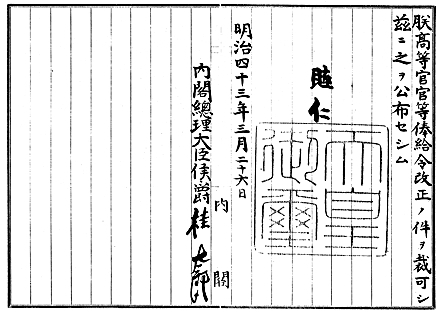 朕高等官官等俸給令改正ノ件ヲ裁可シ
茲ニ之ヲ公布セシム
睦仁
天皇御璽
明治四十三年三月二十六日
内閣總理大臣侯爵桂太郎
内閣